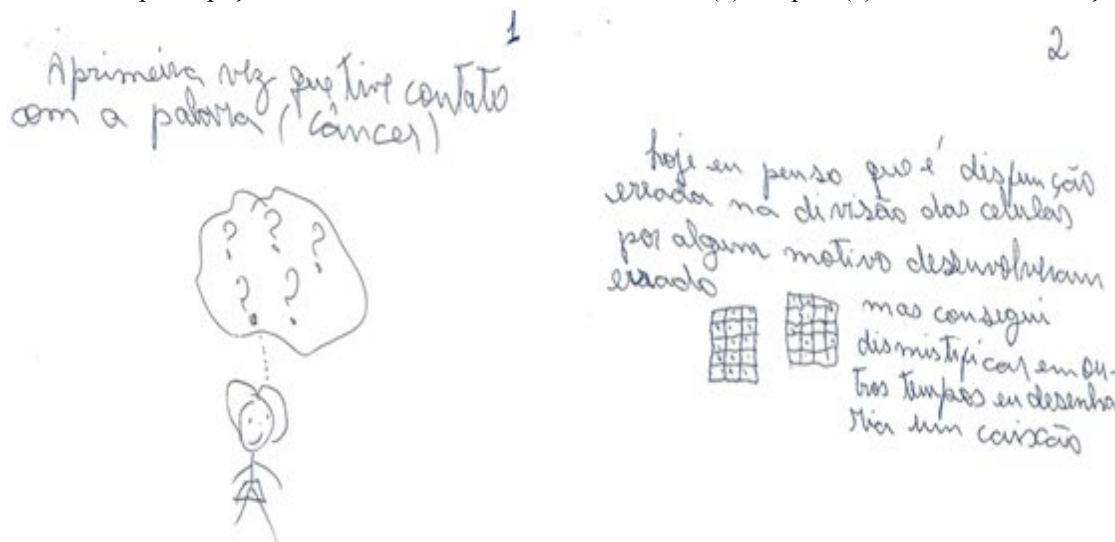 1
A primeira vez que tive contato
com a palavra (câncer)
? ? ?
? ?
2
hoje eu penso que é disfunção
errada na divisão das celulas
por algum motivo desenvolveram
errado
mas consegui
dismistificar em ou-
tros tempos eu desenha
ria um caixão